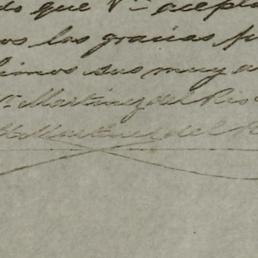 do que Vᵐ acepta
os las gracias p
imos sus muy a
Martinez del Rio
Martinez del R